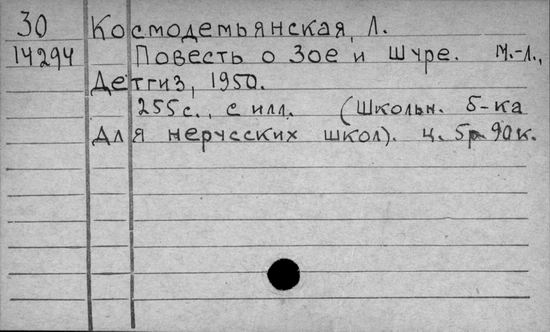 30 Космодемьянская, Л.
14294 Повесть о Зое и Шуре. М.-Л.,
Детгиз, 1950.
255 с., с илл. (Школьн. б-ка
для нерусских школ). ц. 5р 90к.